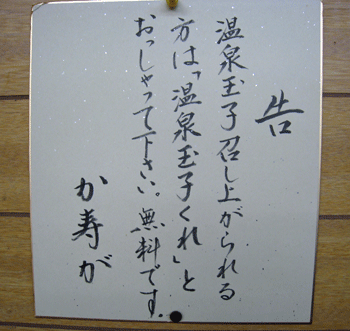 告
温泉玉子召し上がられる
方は「温泉玉子くれ」と
おっしゃって下さい。無料です.
か寿が